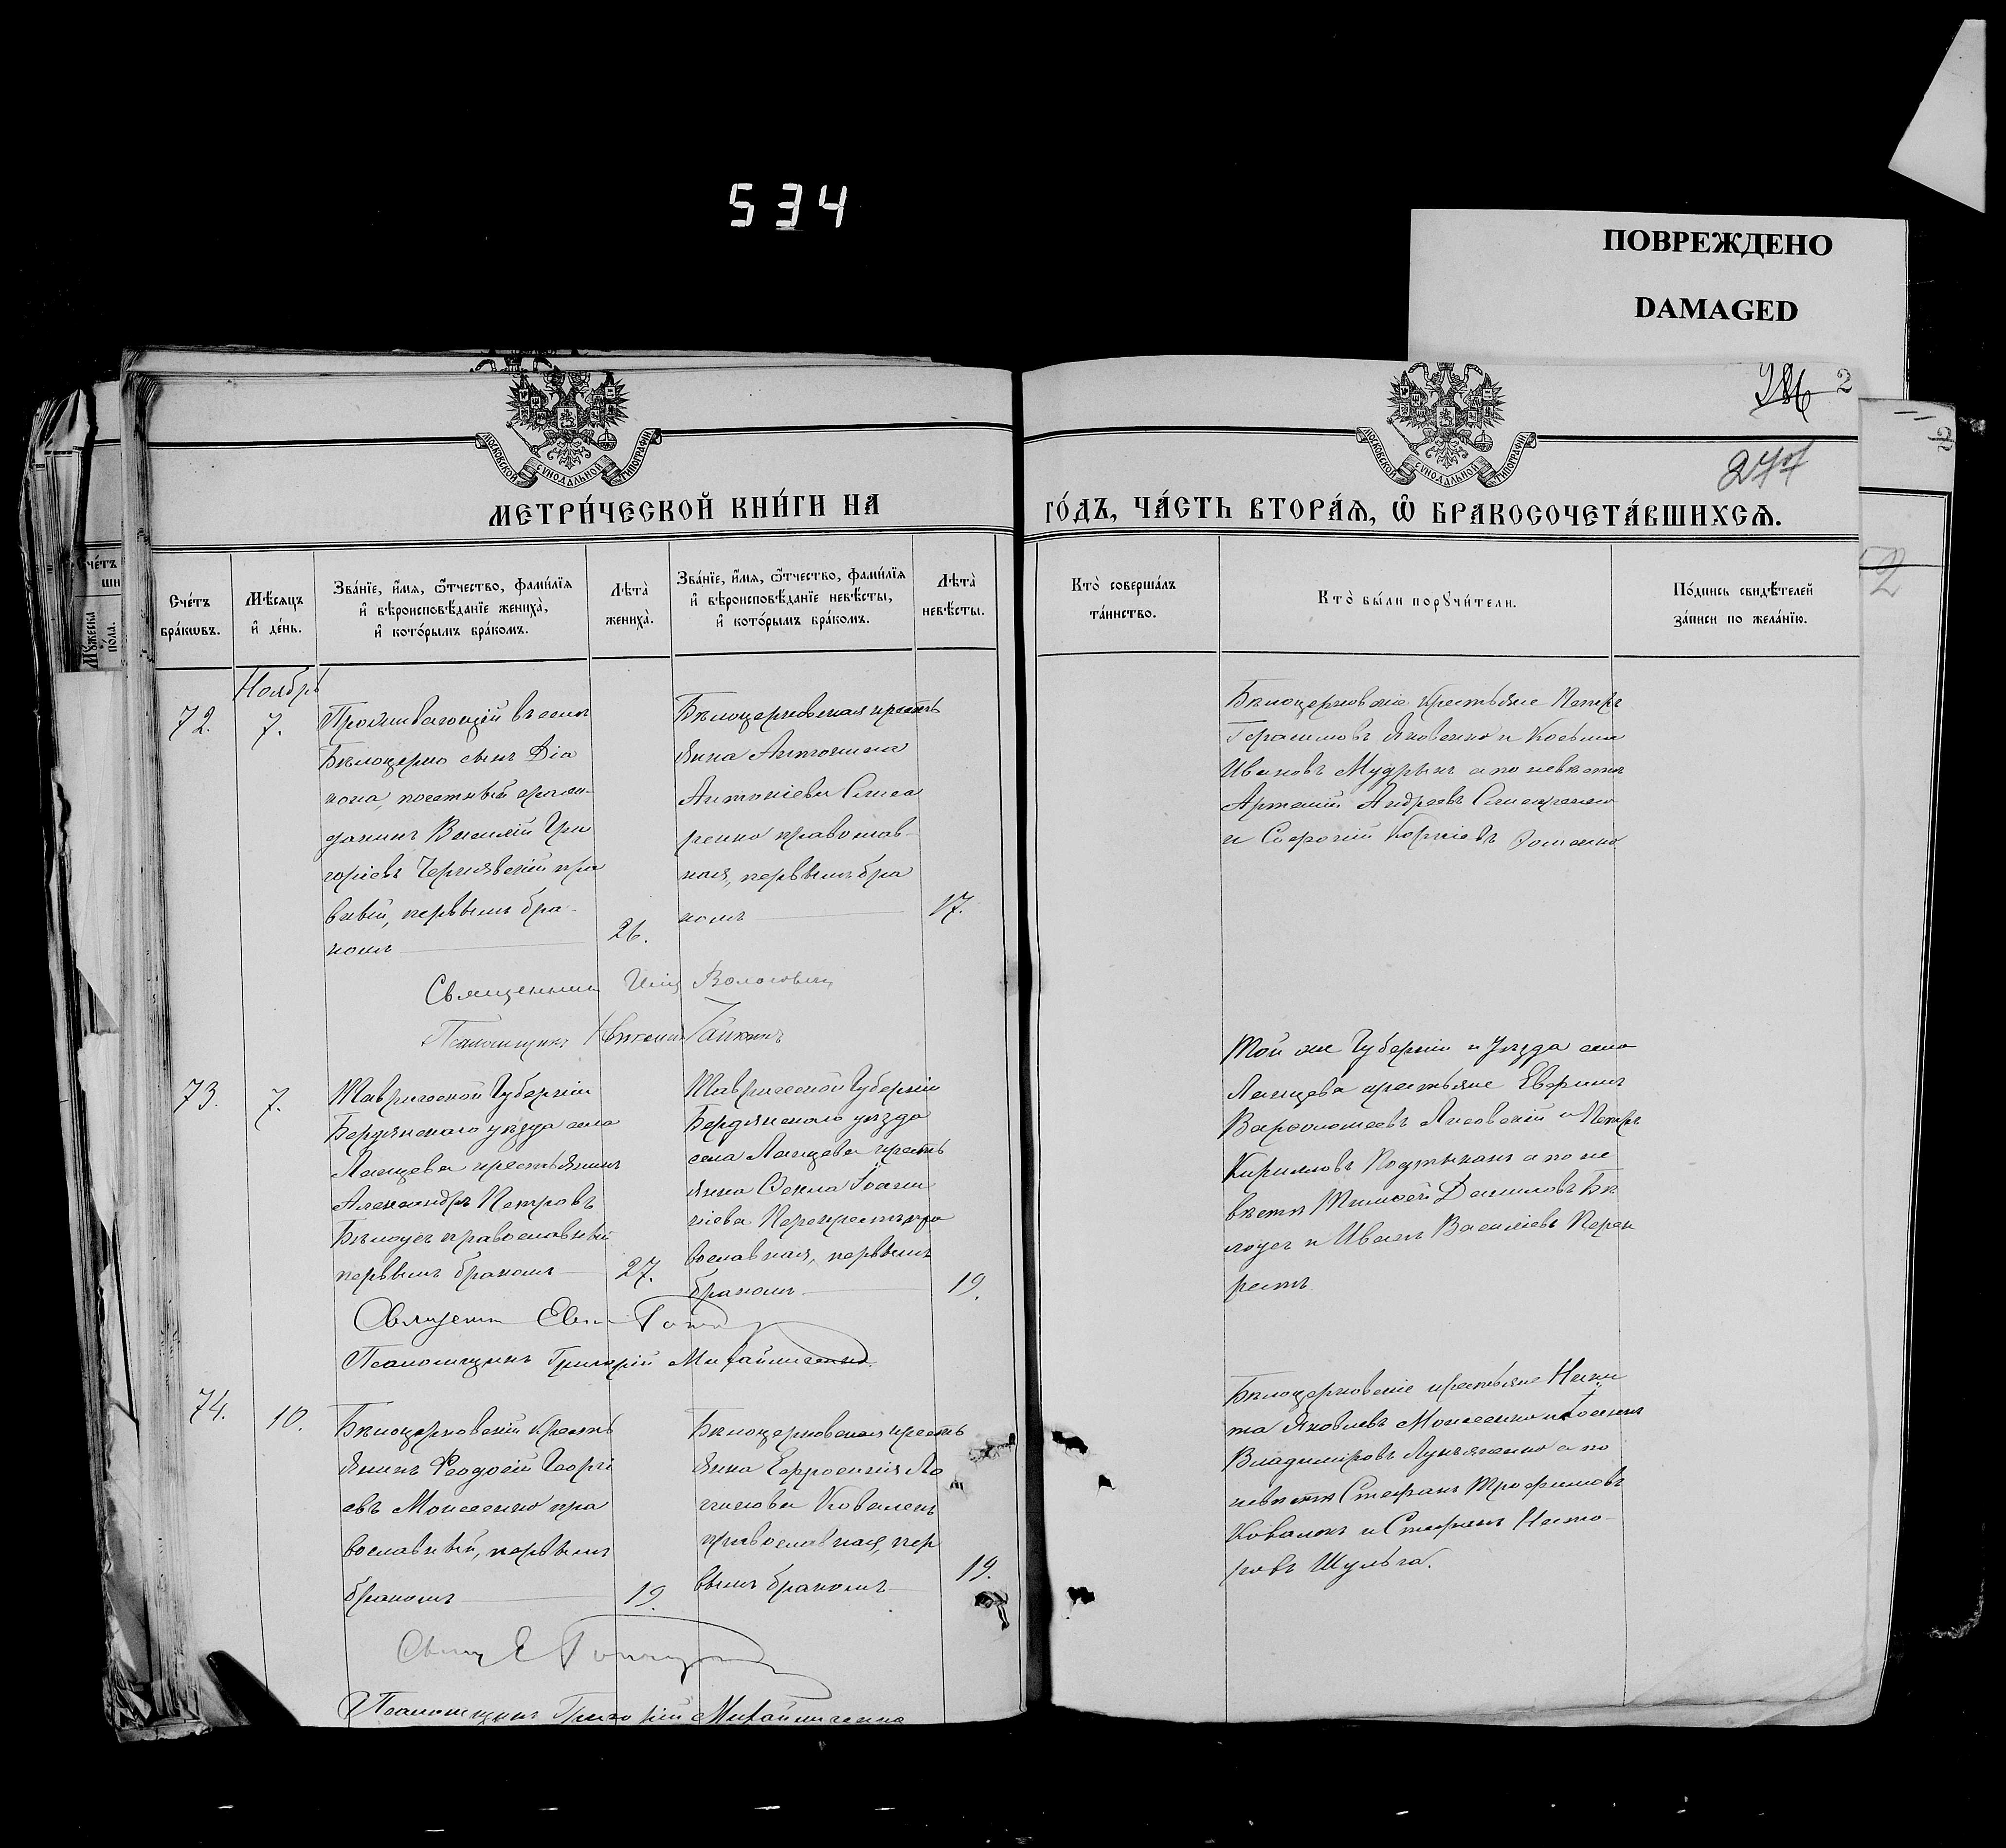 534
ПОВРЕЖДЕНО
DAMAGED
2
277
МОСКОВСКОЙ СѴНОДАЛЬНОЙ ТИПОГРАФІИ
МОСКОВСКОЙ СѴНОДАЛЬНОЙ ТИПОГРАФІИ
МЕТРИ́ЧЕСКОЙ КНИ́ГИ НА
ГО́ДЪ, ЧА́СТЬ ВТОРА́Ѧ, Ѽ БРАКОСОЧЕТА́ВШИХСѦ.
Сче́тъ
бра́кѡвъ.
Мѣ́сѧцъ
и҆ де́нь.
Зва́нїе, и҆́мѧ, ѻ҆́тчество, фами́лїѧ
и҆ вѣроисповѣ́данїе жениха̀,
и҆ кото́рымъ бра́комъ.
Лѣ́та
жениха̀.
Зва́нїе, и҆́мѧ, ѻ҆́тчество, фами́лїѧ
и҆ вѣроисповѣ́данїе невѣ́сты,
и҆ кото́рымъ бра́комъ.
Лѣ́та
невѣ́сты.
Кто̀ соверша́лъ
та́инство.
Кто̀ бы́ли порꙋчи́тели.
По́дпись свидѣ́телей
за́писи по жела́нїю.
Ноябрь
72.
7.
Проживающій въ селѣ
Бѣлоцерко сынъ Діа
кона, почетный граж-
данинъ Василій Гри
горіевъ Чернявскій пра
вный, первымъ бра-
комъ
26.
Бѣлоцерковская кресть
янка Антонина
Антоніева Слюса
ренко православ-
ная, первымъ бра
комъ
17.
Бѣлоцерковскіе крестьяне Петръ
Герасимовъ Яковенко и Косьма
Ивановъ Мудрыкъ а по невѣстѣ
Артемій Андреевъ
и Софроній Корніевъ
Священникъ
Псаломщикъ
73.
7.
Таврической Губерніи
Бердянскаго уѣзда села
Ланцева крестьянинъ
Александръ Петровъ
Бѣлоусъ православный
первымъ бракомъ
27.
Таврической Губерніи
Бердянскаго уѣзда
села Ланцева кресть
янка Ѳекла Іоан
ніева Перехрестъ пра
вославная, первымъ
бракомъ
19.
Той же Губерніи и Уѣзда села
Ланцева крестьяне Ефимъ
Варѳоломеевъ Лисовскій и Петръ
Кирилловъ а по не
вѣстѣ Тимоѳей Даниловъ Бѣ
лоусъ и Иванъ Василіевъ Перех
рестъ
Священникъ
Псаломщикъ Григорій Михайличенко
74.
10.
Бѣлоцерковскій кресть
янинъ Ѳеодосій Георгі
евъ Моисеенко пра
вославный, первымъ
бракомъ
19.
Бѣлоцерковская кресть
янка Евфросинія Ло
гинова Коваленъ
православная, пер
вымъ бракомъ
19.
Бѣлоцерковскіе крестьяне Ники
та Яковлевъ Моисеенко и
Владиміровъ Лукьяненко а по
невѣстѣ Стефанъ Трофимовъ
Коваленъ и Стефанъ Несто-
ровъ Шульга.
Псаломщикъ Григорій Михайличенко